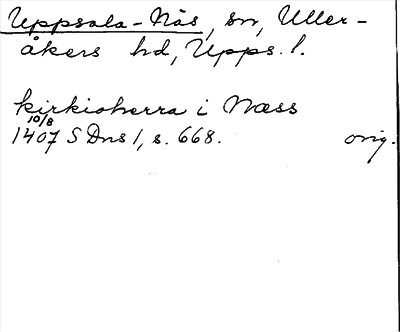 Uppsala-Näs, sn, Uller-
åkers hd, Upps. l.
kirkioherra i Næss
10/8
1407 S Dns 1, s. 668. orig.